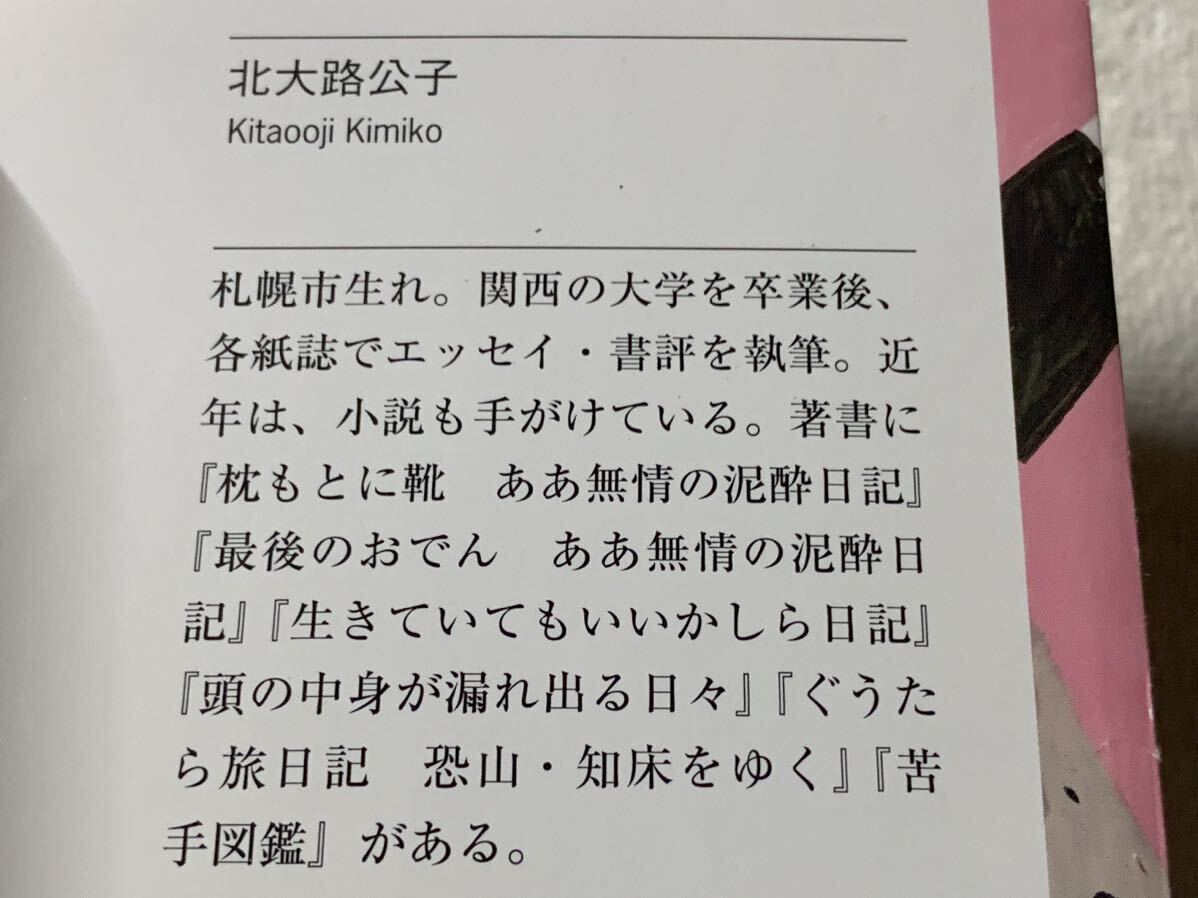 北大路公子
Kitaooji Kimiko
札幌市生れ。関西の大学を卒業後、
各紙誌でエッセイ・書評を執筆。近
年は、小説も手がけている。著書に
『枕もとに靴　ああ無情の泥酔日記』
『最後のおでん　ああ無情の泥酔日
記』『生きていてもいいかしら日記』
『頭の中身が漏れ出る日々』『ぐうた
ら旅日記　恐山・知床をゆく』『苦
手図鑑』がある。